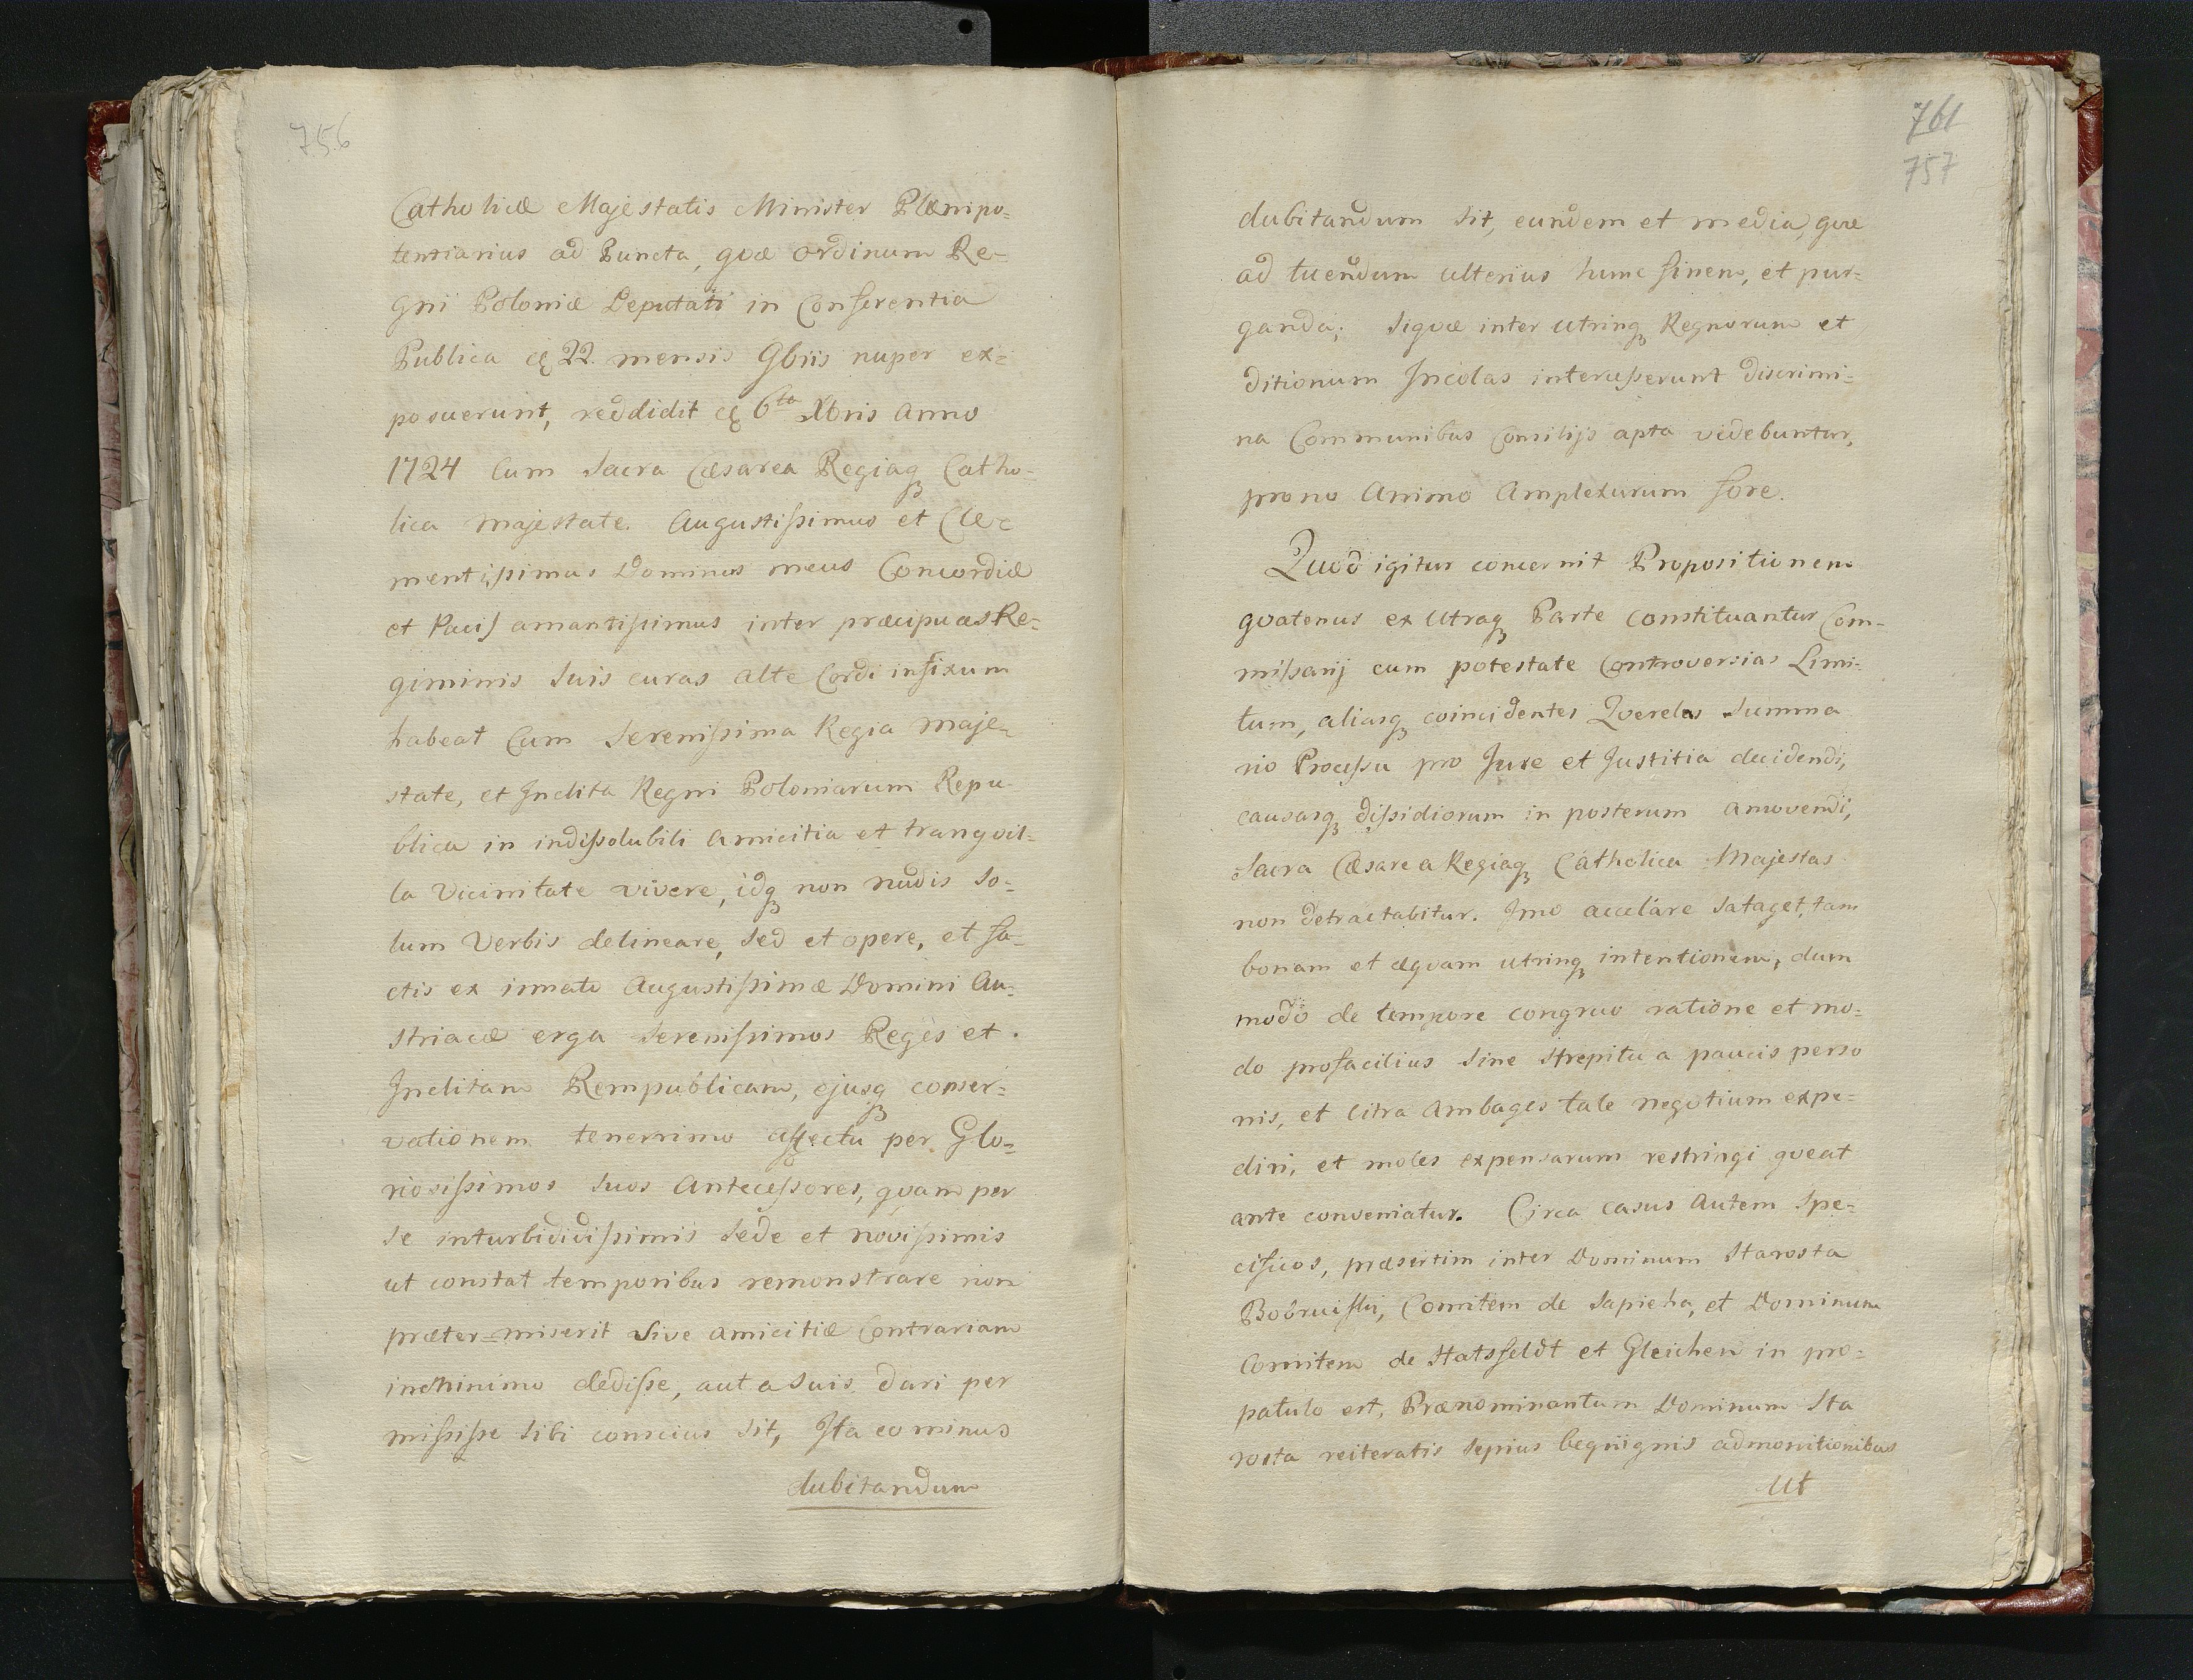 756
Catholicæ Majestatis Minister Plænipo=
tentiarius ad Puncta, qvæ ordinum Re=
gni Poloniæ Deputati in Conferentia
Publica 22. mensis 9briis nuper ex=
posuerunt, reddidit 6ta Xbris Anno
1724 Cum Sacra Cæsarea Regiaq Catho-
lica Majestate. Augustissimus et Cle=
mentissimus Dominus meus Concordiæ
et Pacis amantissimus inter præcipuas Re=
giminis Suis curas alte Cordi infixum
habeat Cum Serenissima Regia Maje=
state, et Inclita Regni Poloniarum Repu-
blica in indissolubili Amicitia et tranqvil=
la Vicinitate vivere, idq non nudis So=
lum Verbis delineare, Sed et opere, et fa=
ctis ex innato Augustissimæ Domini Au=
striacæ erga Serenissimos Reges et
Inclitam Rempublicam, ejusq conser=
vationem tenerrimo affectu per Glo=
riosissimos Suos Antecessores, qvam per
Se inturbididissimis Sede et novissimis
ut constat temporibus remonstrare non
præter=miserit Sive amicitiæ Contrariam
inminimo dedisse, aut a Suis dari per
mississe Sibi conscius Sit, Ita eo minus
dubitandum
761
757
dubitandum Sit, eundem et media, qvæ
ad tuendum ulterius hunc finem, et pur=
ganda; Siqvæ inter utrinq Regnorum et
ditionum Incolas intercesserunt discrimi=
na Communibus Consilijs apta videbuntur,
prono Animo Amplexurum fore.
Quod igitur concernit Propositionem
qvatenus ex Utraq Parte Constituantur Com=
missarij cum potestate Controversias Limi=
tum, aliasq coincidentes Qverelas Summa
rio Processu pro Jure et Justitia decidendi,
causasq dissidiorum in posterum amovendi,
Sacra Cæsarea Regiaq Catholica Majestas
non detractabitur. Imo accelare Sataget, tam
bonam et æqvam utrinq intentionem, dum
modo de tempore congruo ratione et mo=
do profacilius Sine Strepitu a paucis perso
nis, et Citra Ambages tale negotium expe=
diri, et moles expensarum restringi qveat
ante conveniatur. Circa casus Autem Spe=
cificos, præsertim inter Dominum Starosta
Bobruiski, Comitem de Sapieha, et Dominum
Comitem de Hatsfeldt et Gleichen in pro=
patulo est, Prænominantum Dominum Sta
rosta reiteratis Sepius admonitionibus
Ut